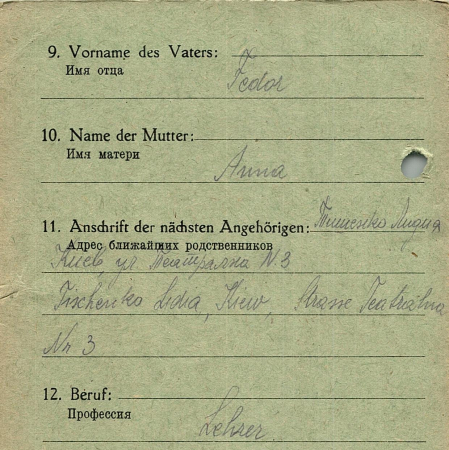 9. Vorname des Vaters:
Имя отца
Fedor
10. Name der Mutter:
Имя матери
Anna
11. Anschrift der nächsten Angehörigen: Тищенко Лидия
Адрес ближайших родственников
Киев, ул. Театральна N. 3
Tischenko Lidia, Kiew, Strasse Teatralna
Nr. 3
12. Beruf:
Профессия
Lehrer